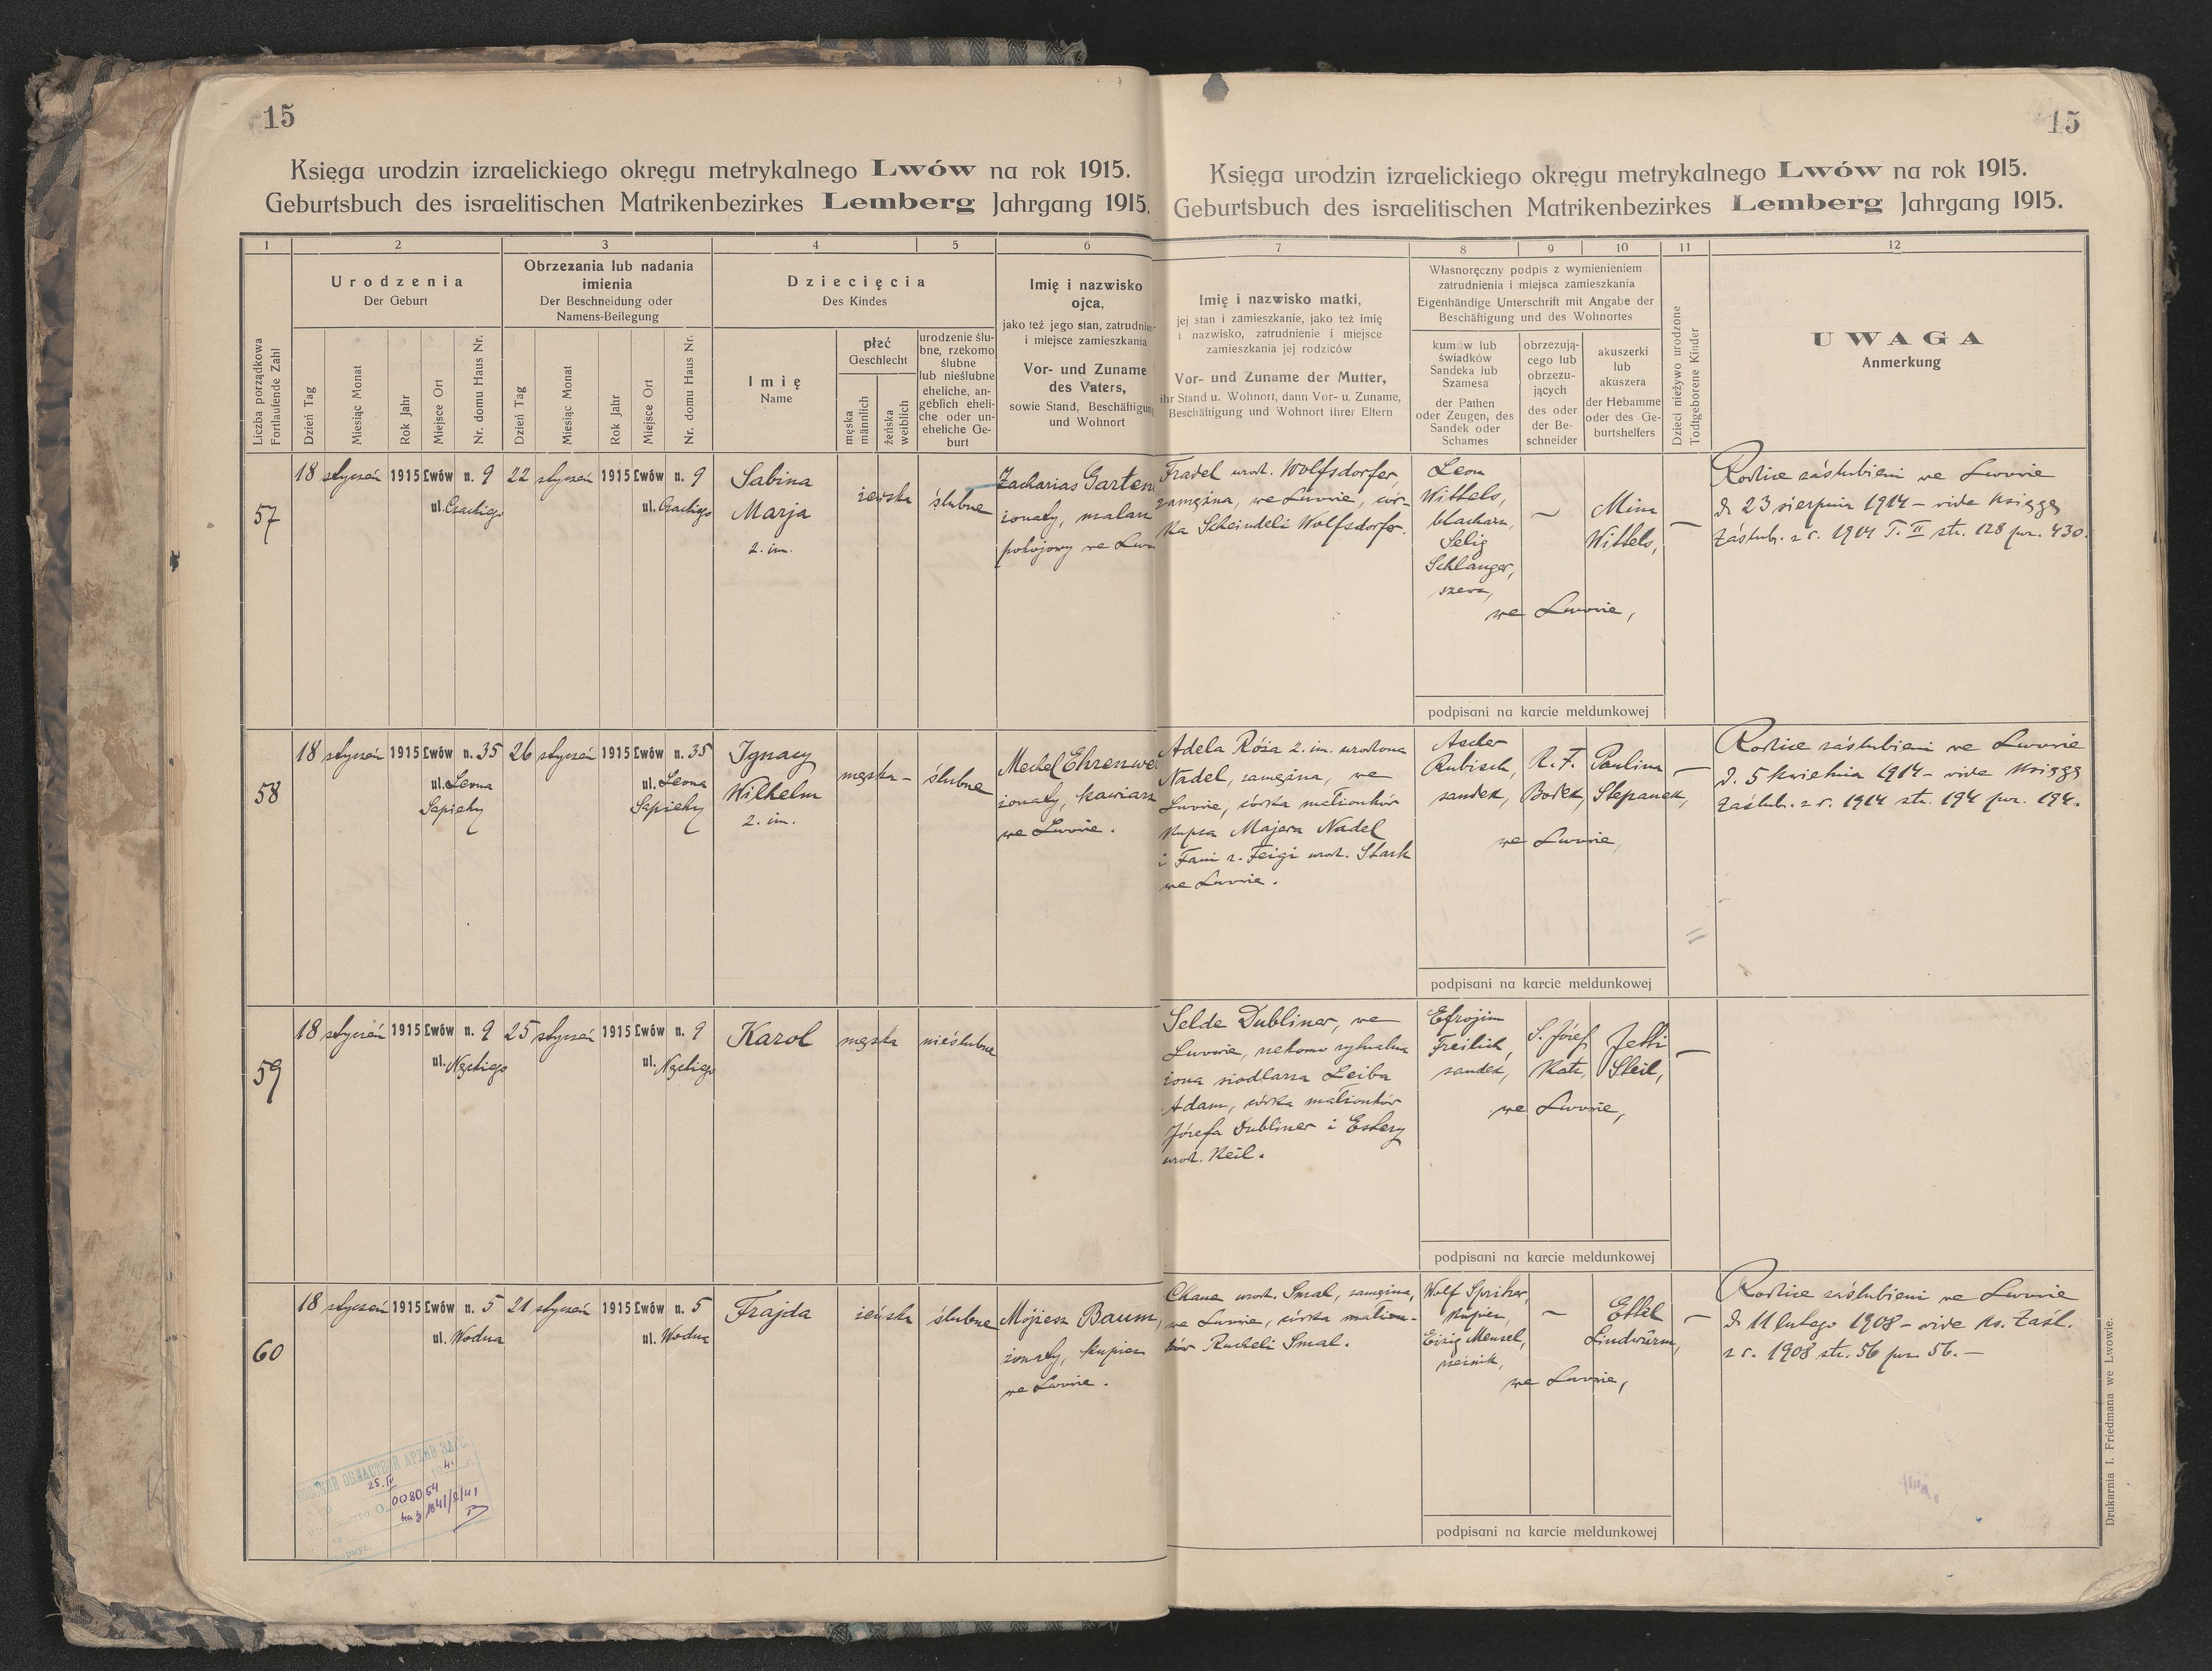 15
Księga urodzin izraelickiego okręgu metrykalnego Lwów na rok 1915.
Geburtsbuch des israelitischen Matrikenbezirkes Lemberg Jahrgang 1915.
1 2 3 4 5 6
Liczba porządkowa
Fortlaufende Zahl
Urodzenia
Der Geburt
Dzień Tag
Miesiąc Monat
Rok Jahr
Miejsce Ort
Nr. domu Haus Nr.
Obrzezania lub nadania
imienia
Der Beschneidung oder
Namens-Beilegung
Dzień Tag
Miesiąc Monat
Rok Jahr
Miejsce Ort
Nr. domu Haus Nr.
Dziecięcia
Des Kindes
Imię
Name
płeć
Geschlecht
męska
männlich
żeńska
weiblich
urodzenie ślu-
bne, rzekomo
ślubne
lub nieślubne
eheliche, an-
geblich eheli-
che oder un-
eheliche Ge-
burt
Imię i nazwisko
ojca,
jako też jego stan, zatrudnie-
i miejsce zamieszkania
Vor- und Zuname
des Vaters,
sowie Stand, Beschäftigung
und Wohnort
57
18 styczeń 1915 Lwów n. 9
ul.
22 styczeń 1915 Lwów n. 9
ul.
Sabina
Marja
2. im.
żeńska
ślubne
Zacharias Garten
żonaty, malarz
pokojowy we Lwo
58
18 styczeń 1915 Lwów n. 35
ul. Leona
Sapiehy
26 styczeń 1915 Lwów n. 35
ul. Leona
Sapiehy
Ignacy
Wilhelm
2. im.
męska
ślubne
Mechel Ehrenwe
żonaty, kawiarz
we Lwowie.
59
18 styczeń 1915 Lwów n. 9
ul.
25 styczeń 1915 Lwów n. 9
ul.
Karol
męska
nieślubne
60
18 styczeń 1915 Lwów n. 5
ul. Wodna
21 styczeń 1915 Lwów n. 5
ul. Wodna
Frajda
żeńska
ślubne
Mojżesz Baum,
żonaty, kupiec
we Lwowie.
ОБЛАСТНОЙ АРХИВ ЗАГС
25.IV
008054
15
Księga urodzin izraelickiego okręgu metrykalnego Lwów na rok 1915.
Geburtsbuch des israelitischen Matrikenbezirkes Lemberg Jahrgang 1915.
7 8 9 10 11 12
Imię i nazwisko matki,
jej stan i zamieszkanie, jako też imię
i nazwisko, zatrudnienie i miejsce
zamieszkania jej rodziców
Vor- und Zuname der Mutter,
ihr Stand u. Wohnort, dann Vor- u. Zuname,
Beschäftigung und Wohnort ihrer Eltern
Własnoręczny podpis z wymienieniem
zatrudnienia i miejsca zamieszkania
Eigenhändige Unterschrift mit Angabe der
Beschäftigung und des Wohnortes
kumów lub
świadków
Sandeka lub
Szamesa
der Pathen
oder Zeugen, des
Sandek oder
Schames
obrzezują-
cego lub
obrzezu-
jących
des oder
der Be-
schneider
akuszerki
lub
akuszera
der Hebamme
oder des Ge-
burtshelfers
Dzieci nieżywo urodzone
Todtgeborene Kinder
UWAGA
Anmerkung
Fradel urodz. Wolfsdorfer,
zamężna, we Lwowie, cór-
ka Scheindeli Wolfsdorfer.
Leon
Wittels,
blacharz,
Selig
Schlanger,
szewc,
Mina
Wittels,
we Lwowie,
podpisani na karcie meldunkowej
Rodzice zaślubieni we Lwowie
d. 23 sierpnia 1914 – vide księgę
zaślub. z r. 1914 T. II str. 128 poz. 430.
Adela Róża 2. im. urodzona
Nadel, zamężna, we
Lwowie, córka małżonków
kupca Majera Nadel
i Fani r. Feigi urodz. Stark
we Lwowie.
Ascher
Rubisch,
sandek,
R. F.
Bodek,
Paulina
Stepanek,
we Lwowie,
podpisani na karcie meldunkowej
Rodzice zaślubieni we Lwowie
d. 5 kwietnia 1914 – vide księgę
zaślub. z r. 1914 str. 194 poz. 194.
Selde Dubliner, we
Lwowie, rzekomo rytualna
żona siodlarza Leiba
Adam, córka małżonków
Józefa Dubliner i Estery
urodz. Keil.
Efrojim
Freilich,
sandek,
S. Józef
Katz,
Jetti
Steil,
we Lwowie,
podpisani na karcie meldunkowej
Chane urodz. Smal, zamężna,
we Lwowie, córka małżon-
ków Racheli Smal.
Wolf Spritzer,
kupiec,
Eizig Mensel,
rzeźnik,
Ettel
Lindwurm,
we Lwowie,
podpisani na karcie meldunkowej
Rodzice zaślubieni we Lwowie
d. 11 lutego 1908 – vide ks. zaśl.
z r. 1908 str. 56 poz. 56. –
Drukarnia I. Friedmana we Lwowie.